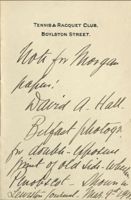 TENNIS & RACQUET CLUB,
BOYLSTON STREET.
Note for Morgan
papers:
David A. Hall.
Belfast photog
for double-exposure
print of old side-wheeler
Penobscot - Shown in
Lewiston Journal Mar. 9th